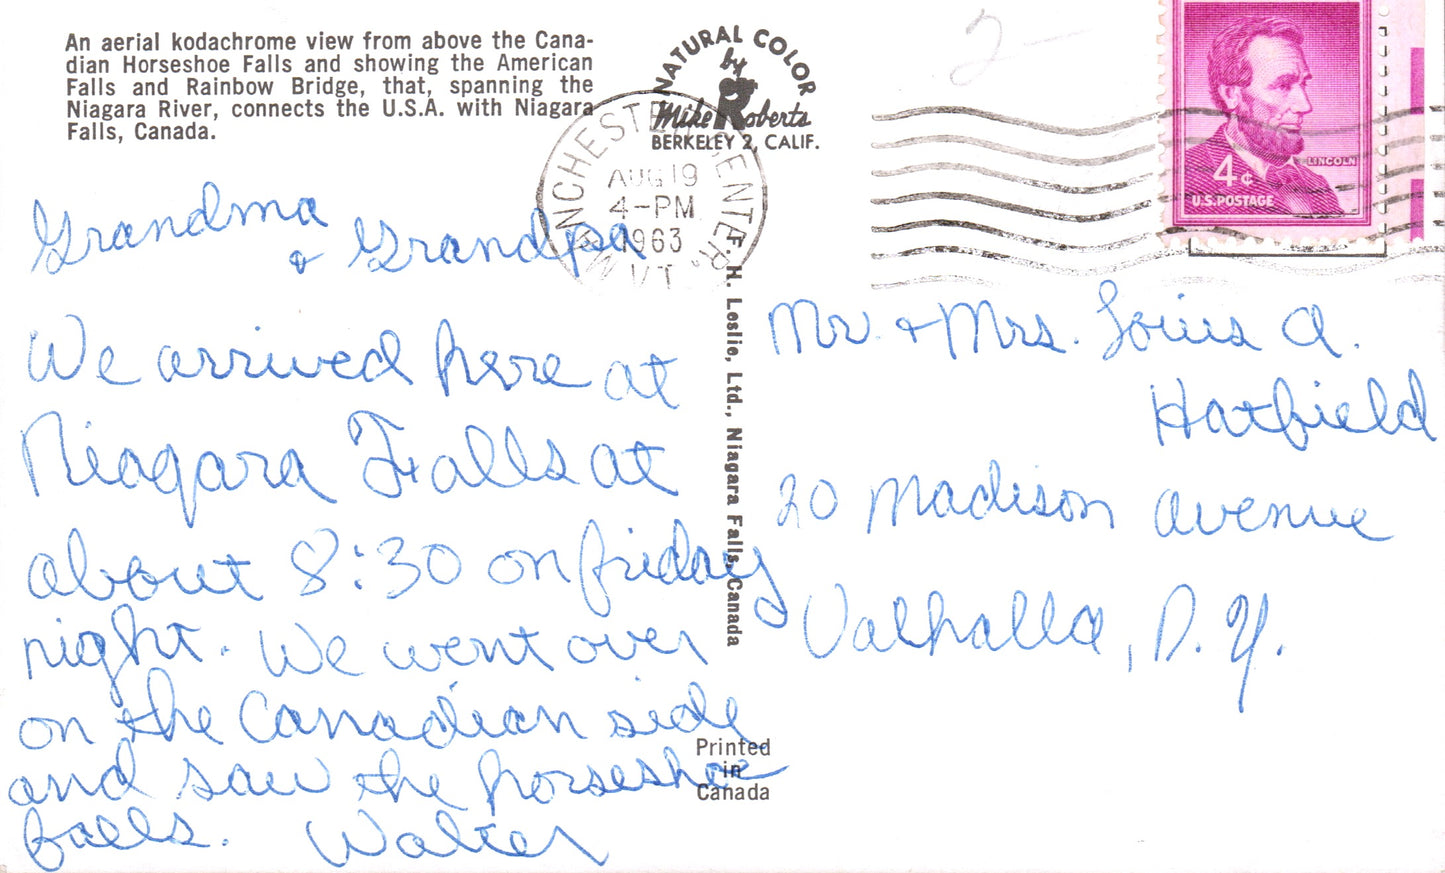 An aerial kodachrome view from above the Cana-
dian Horseshoe Falls and showing the American
Falls and Rainbow Bridge, that, spanning the
Niagara River, connects the U.S.A. with Niagara
Falls, Canada.
NATURAL COLOR
by
Mike Roberts
BERKELEY 2, CALIF.
2
MANCHESTER CENTER
AUG 19
4-PM
1963
VT.
LINCOLN
4¢
U.S. POSTAGE
Grandma
& Grandpa
We arrived here at
Niagara Falls at
about 8:30 on friday
night. We went over
on the Canadian side
and saw the horseshoe
falls. Walter
F. H. Leslie, Ltd., Niagara Falls, Canada
Printed
in
Canada
Mr. & Mrs. Louis A.
Hatfield
20 Madison Avenue
Valhalla, N. Y.